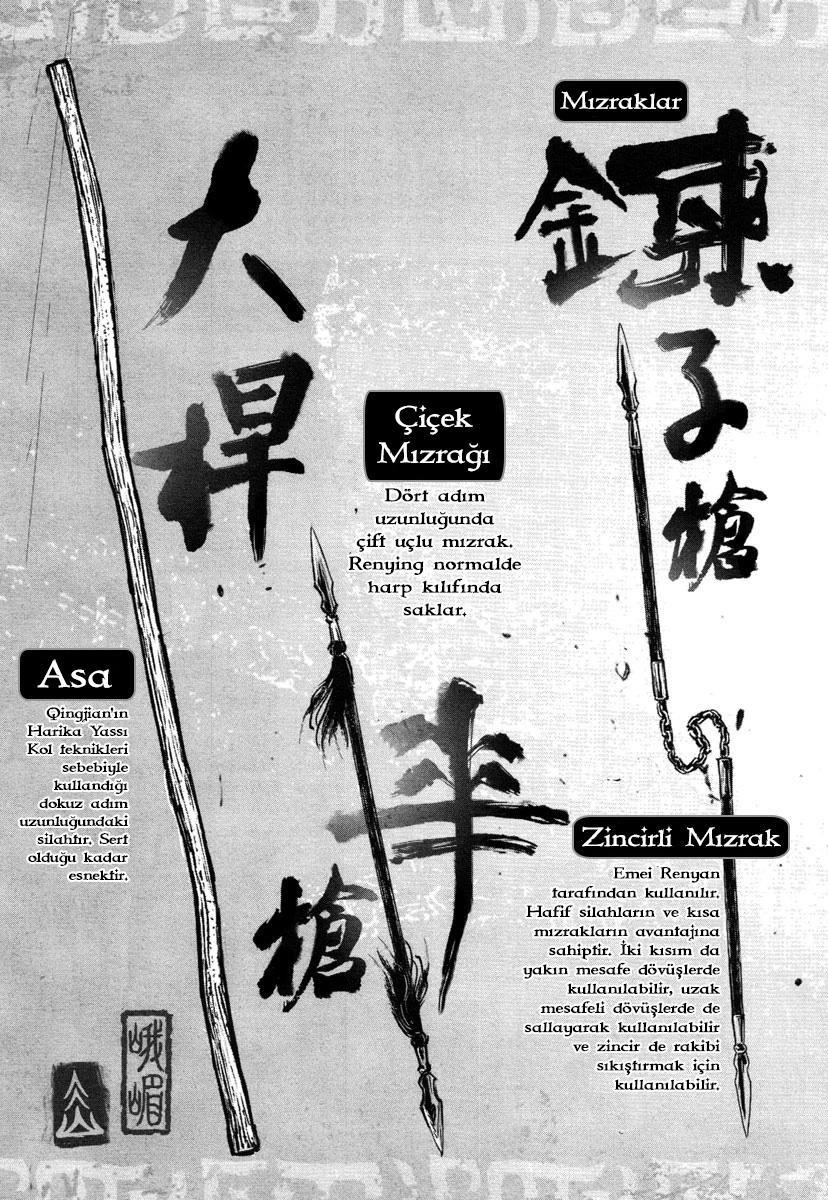 Mızraklar
鏈
子
槍
大
桿
Çiçek
Mızrağı
Dört adım
uzunluğunda
çift uçlu mızrak.
Renying normalde
harp kılıfında
saklar.
Asa
Qingjian'ın
Harika Yassı
Kol teknikleri
sebebiyle
kullandığı
dokuz adım
uzunluğundaki
silahtır. Sert
olduğu kadar
esnektir.
槍
Zincirli Mızrak
Emei Renyan
tarafından kullanılır.
Hafif silahların ve kısa
mızrakların avantajına
sahiptir. İki kısım da
yakın mesafe dövüşlerde
kullanılabilir, uzak
mesafeli dövüşlerde de
sallayarak kullanılabilir
ve zincir de rakibi
sıkıştırmak için
kullanılabilir.
峨
嵋